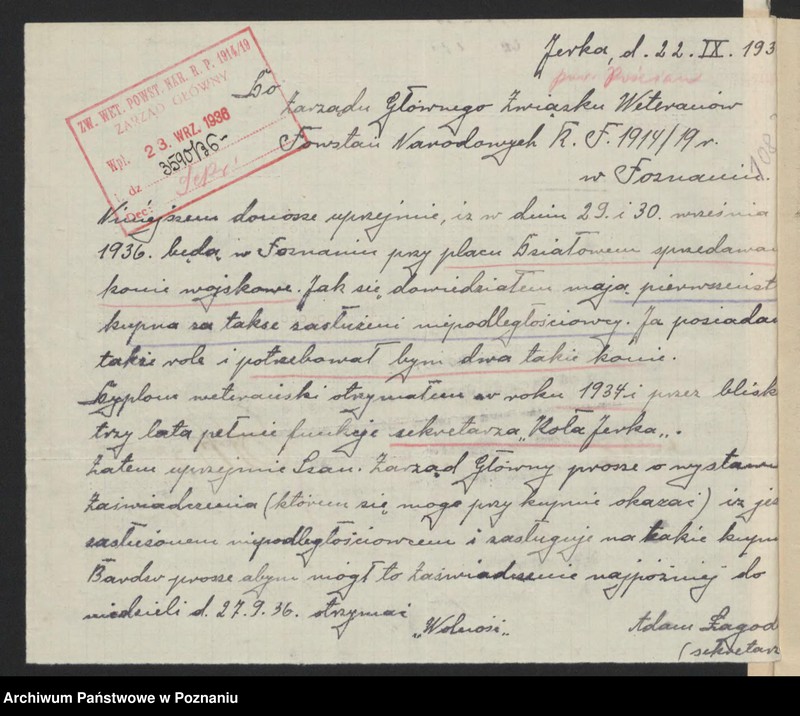 Jerka, d. 22. IX. 193
pow. Kościan
ZW. WET. POWST. NAR. R. P. 1914/19
ZARZĄD GŁÓWNY
Wpł. 23. WRZ. 1936
L. dz 3590/36-
Dec:
Do
Zarządu Głównego Związku Weteranów
Powstań Narodowych R. P. 1914/19 r.
w Poznaniu.
Niniejszem donosze uprzejmie, iz w dniu 29. i 30. września
1936. będą w Poznaniu przy placu Działowem sprzedawan
konie wojskowe. Jak się dowiedziałem mają pierwszeńst
kupna za takse zasłużeni niepodległościowcy. Ja posiadam
takze role i potrzebował bym dwa takie konie.
Dyplom weterański otrzymałem w roku 1934 i przez blisk
trzy lata pełnie funkcje sekretarza „Koła Jerka„.
Zatem uprzejmie Szan. Zarząd Główny prosze o wystawi
Zaświadczenia (którem się moge przy kupnie okazać) iz jes
zasłużonem niepodległościowcem i zasługuje na takie kupn
Bardzo prosze abym mógł to Zaświadczenie najpóźniej do
niedzieli d. 27.9.36. otrzymać
„Wolność„
Adam Łagod
(sekretarz
Archiwum Państwowe w Poznaniu